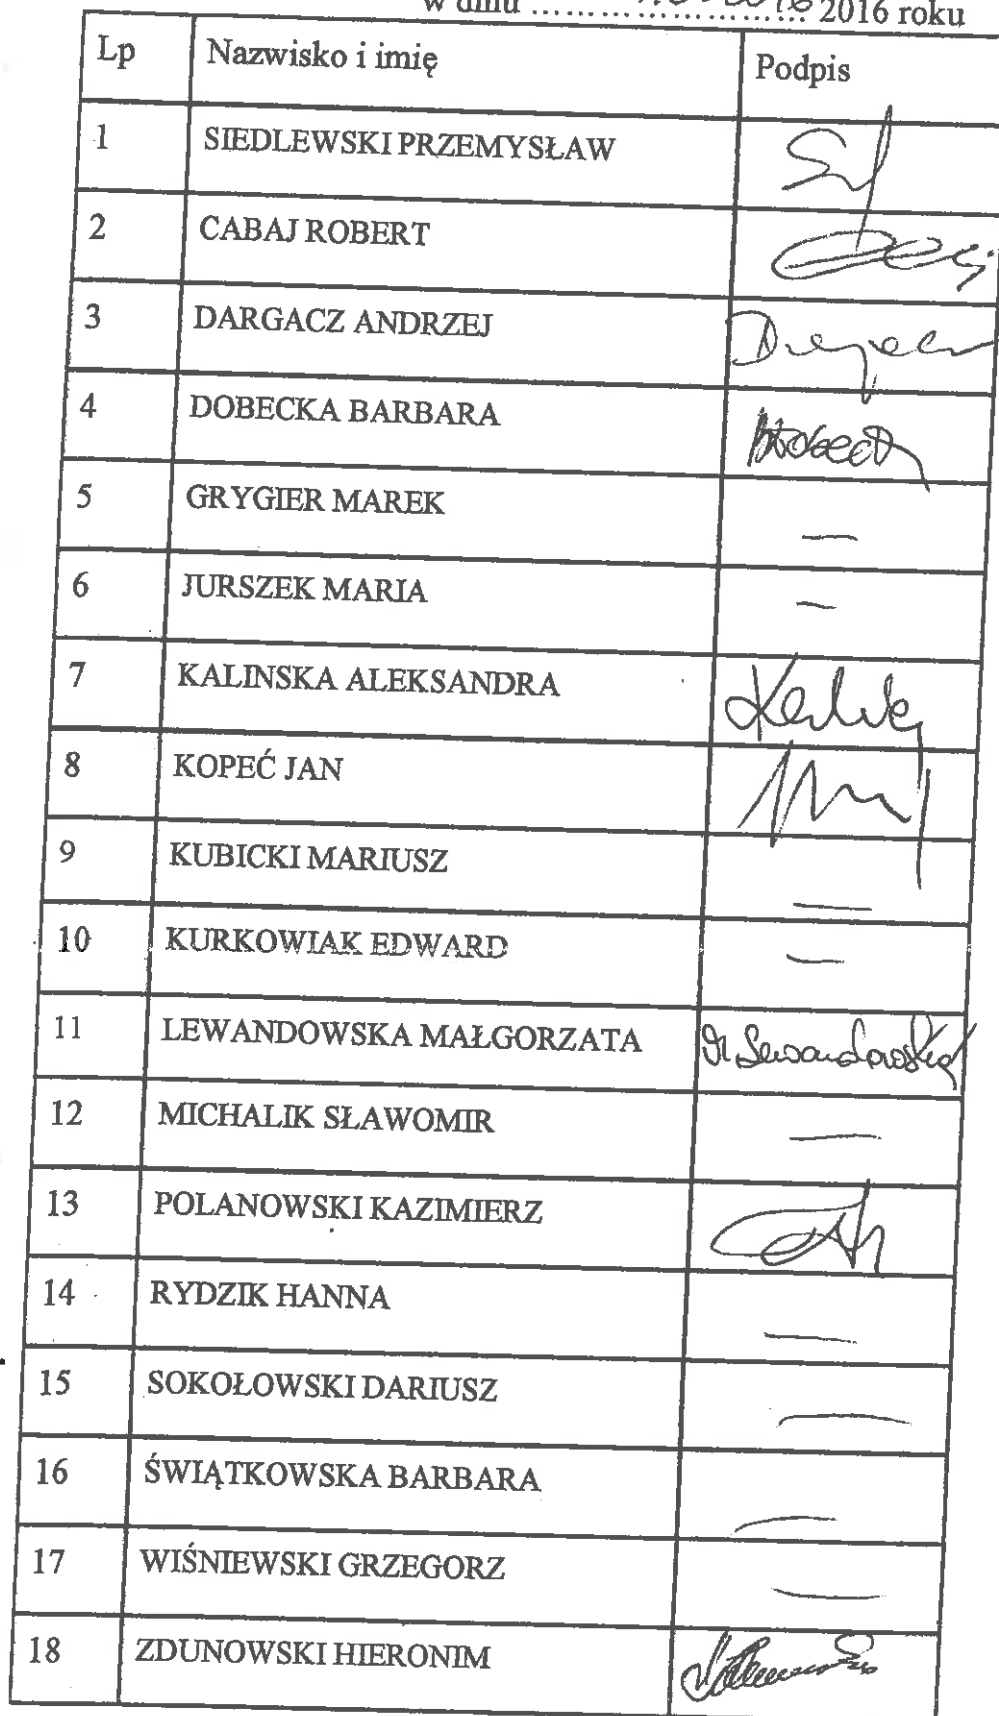 w dniu ........................... 2016 roku
Lp Nazwisko i imię Podpis
1 SIEDLEWSKI PRZEMYSŁAW
2 CABAJ ROBERT
3 DARGACZ ANDRZEJ
4 DOBECKA BARBARA
5 GRYGIER MAREK —
6 JURSZEK MARIA —
7 KALINSKA ALEKSANDRA
8 KOPEĆ JAN
9 KUBICKI MARIUSZ —
10 KURKOWIAK EDWARD —
11 LEWANDOWSKA MAŁGORZATA M Lewandowska
12 MICHALIK SŁAWOMIR —
13 POLANOWSKI KAZIMIERZ
14 RYDZIK HANNA —
15 SOKOŁOWSKI DARIUSZ —
16 ŚWIĄTKOWSKA BARBARA —
17 WIŚNIEWSKI GRZEGORZ —
18 ZDUNOWSKI HIERONIM